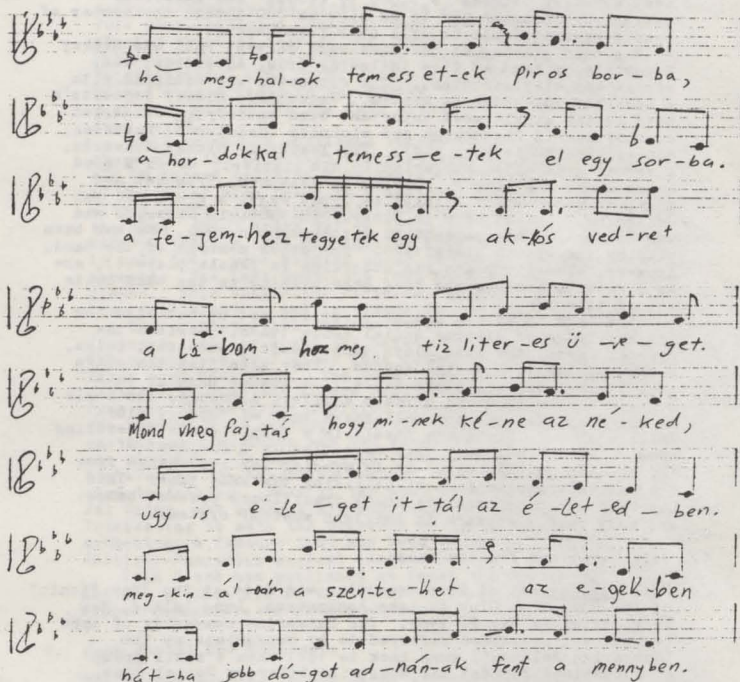 ha meg-hal-ok temess et-ek piros bor-ba,
a hor-dókkal temess-e-tek el egy sor-ba.
a fe-jem-hez tegyetek egy ak-kós ved-ret
a lá-bam-hoz meg tiz liter-es ü-ve-get.
Mond vheg paj-tás hogy mi-nek ké-ne az né-ked,
ugy is e-le-get it-tál az é-let-ed-ben.
meg-kin-ál-nám a szen-te-ket az e-gek-ben
hát-ha jobb dó-got ad-nán-ak fent a mennyben.